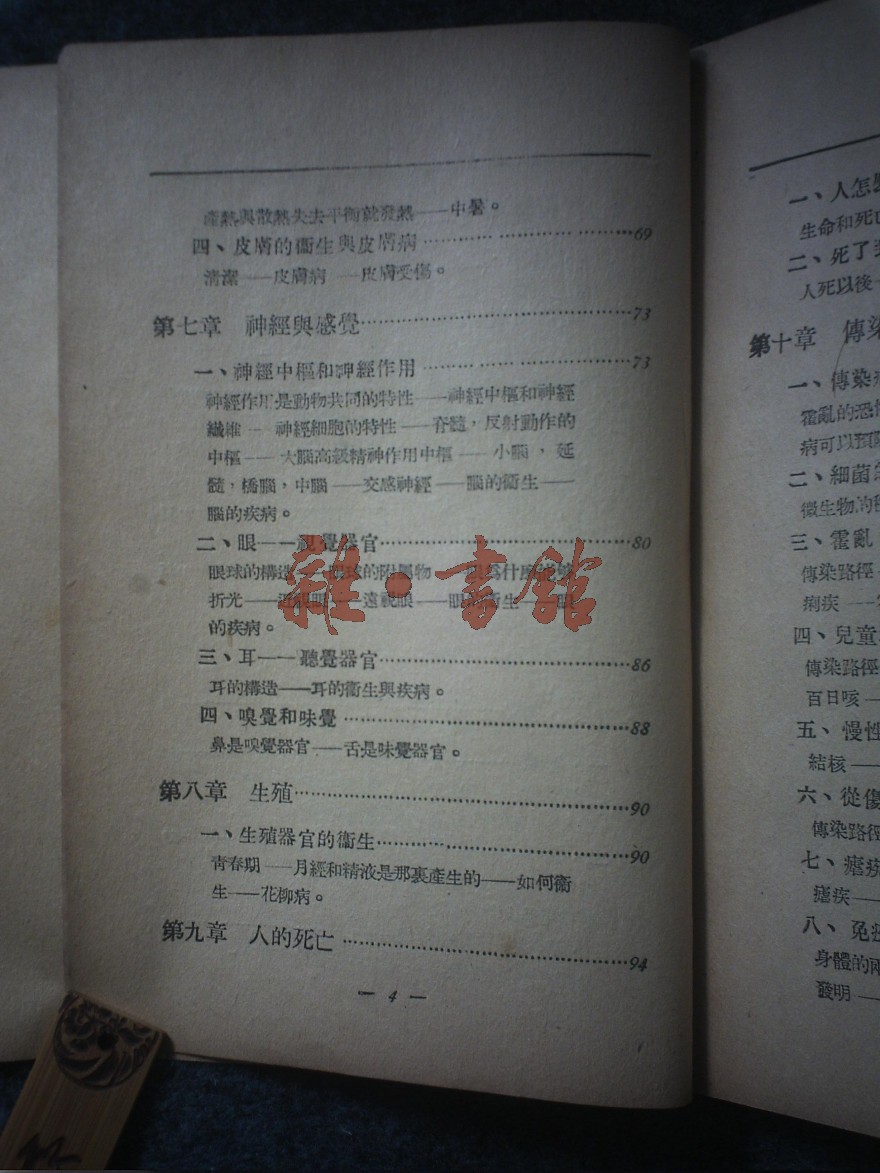 產熱與散熱失去平衡就發熱——中暑。
四、皮膚的衞生與皮膚病…………………69
清潔——皮膚病——皮膚受傷。
第七章　神經與感覺…………………73
一、神經中樞和神經作用…………………73
神經作用是動物共同的特性——神經中樞和神經
纖維——神經細胞的特性——脊髓，反射動作的
中樞——大腦高級精神作用中樞——小腦，延
髓，橋腦，中腦——交感神經——腦的衞生——
腦的疾病。
二、眼——視覺器官…………………80
眼球的構造——眼球的附屬物——眼爲什麼能够
折光——近視眼——遠視眼——眼的衞生——眼
的疾病。
三、耳——聽覺器官…………………86
耳的構造——耳的衞生與疾病。
四、嗅覺和味覺…………………88
鼻是嗅覺器官——舌是味覺器官。
第八章　生殖…………………90
一、生殖器官的衞生…………………90
靑春期——月經和精液是那裏產生的——如何衞
生——花柳病。
第九章　人的死亡…………………94
— 4 —
雜·書館
一、人怎
生命和死
二、死了
人死以後
第十章　傳染
一、傳染
霍亂的恐
病可以預
二、細菌
微生物的
三、霍亂
傳染路徑
痢疾——
四、兒童
傳染路徑
百日咳—
五、慢性
結核——
六、從傷
傳染路徑
七、瘧疾
瘧疾——
八、免疫
身體的兩
發明——